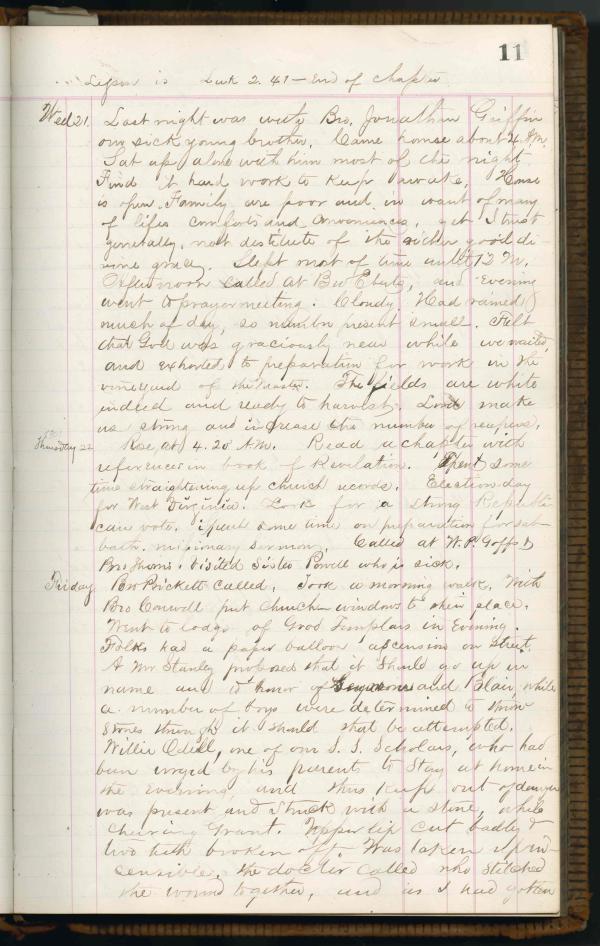 11
Lesson is Luk 2. 41 - End of Chapter
Wed 21. Last night was with Bro. Jonathan Griffin
our sick young brother. Came home about 4 A.M.
Sat up alone with him most of the night.
Find it hard work to keep awake, House
is open. Family are poor and in want of many
of lifes comforts and conveniences, yet I trust
not destitute of the richer good di-
vine grace. Slept most of time until 12 M.
Afternoon called at Bro and Evening
went to prayer meeting. Cloudy. Had rained
much of day, so number present small. Felt
that God was graciously near while we waited,
and exhorted to preparation for work in the
vineyard of the Master. The fields are white
indeed and ready to harvest. Lord make
us strong and increase the number of reapers.
Thursday 22 Rose at 4.20 A.M. Read a chapter with
references in book of Revelation. Spent some
time straightening up church records. Election day
for West Virginia. Look for a strong Republi
can vote. Spent some time on preparation for sab-
bath missionary sermon. Called at W. P. Goff &
Bro Visited Sister Powell who is sick.
Friday Bro Prickett called. Took a morning walk. With
Bro put Church windows to their place.
Went to lodge of Good Templars in Evening.
Folks had a paper balloon ascension on Street.
A Mr Stanley proposed that it should go up in
name and honor of Seymour and Blair, while
a number of boys were determined to throw
stones through it should that be attempted.
Willie Odell, one of our S. S. Scholars, who had
been urged by his parents to stay at home in
the evening and thus keep out of danger
was present and struck with a stone, while
cheering Grant. Upper lip cut badly &
two teeth broken off. Was taken up in-
sensible. the doctor called who stitched
the wound together, and as I had gotten